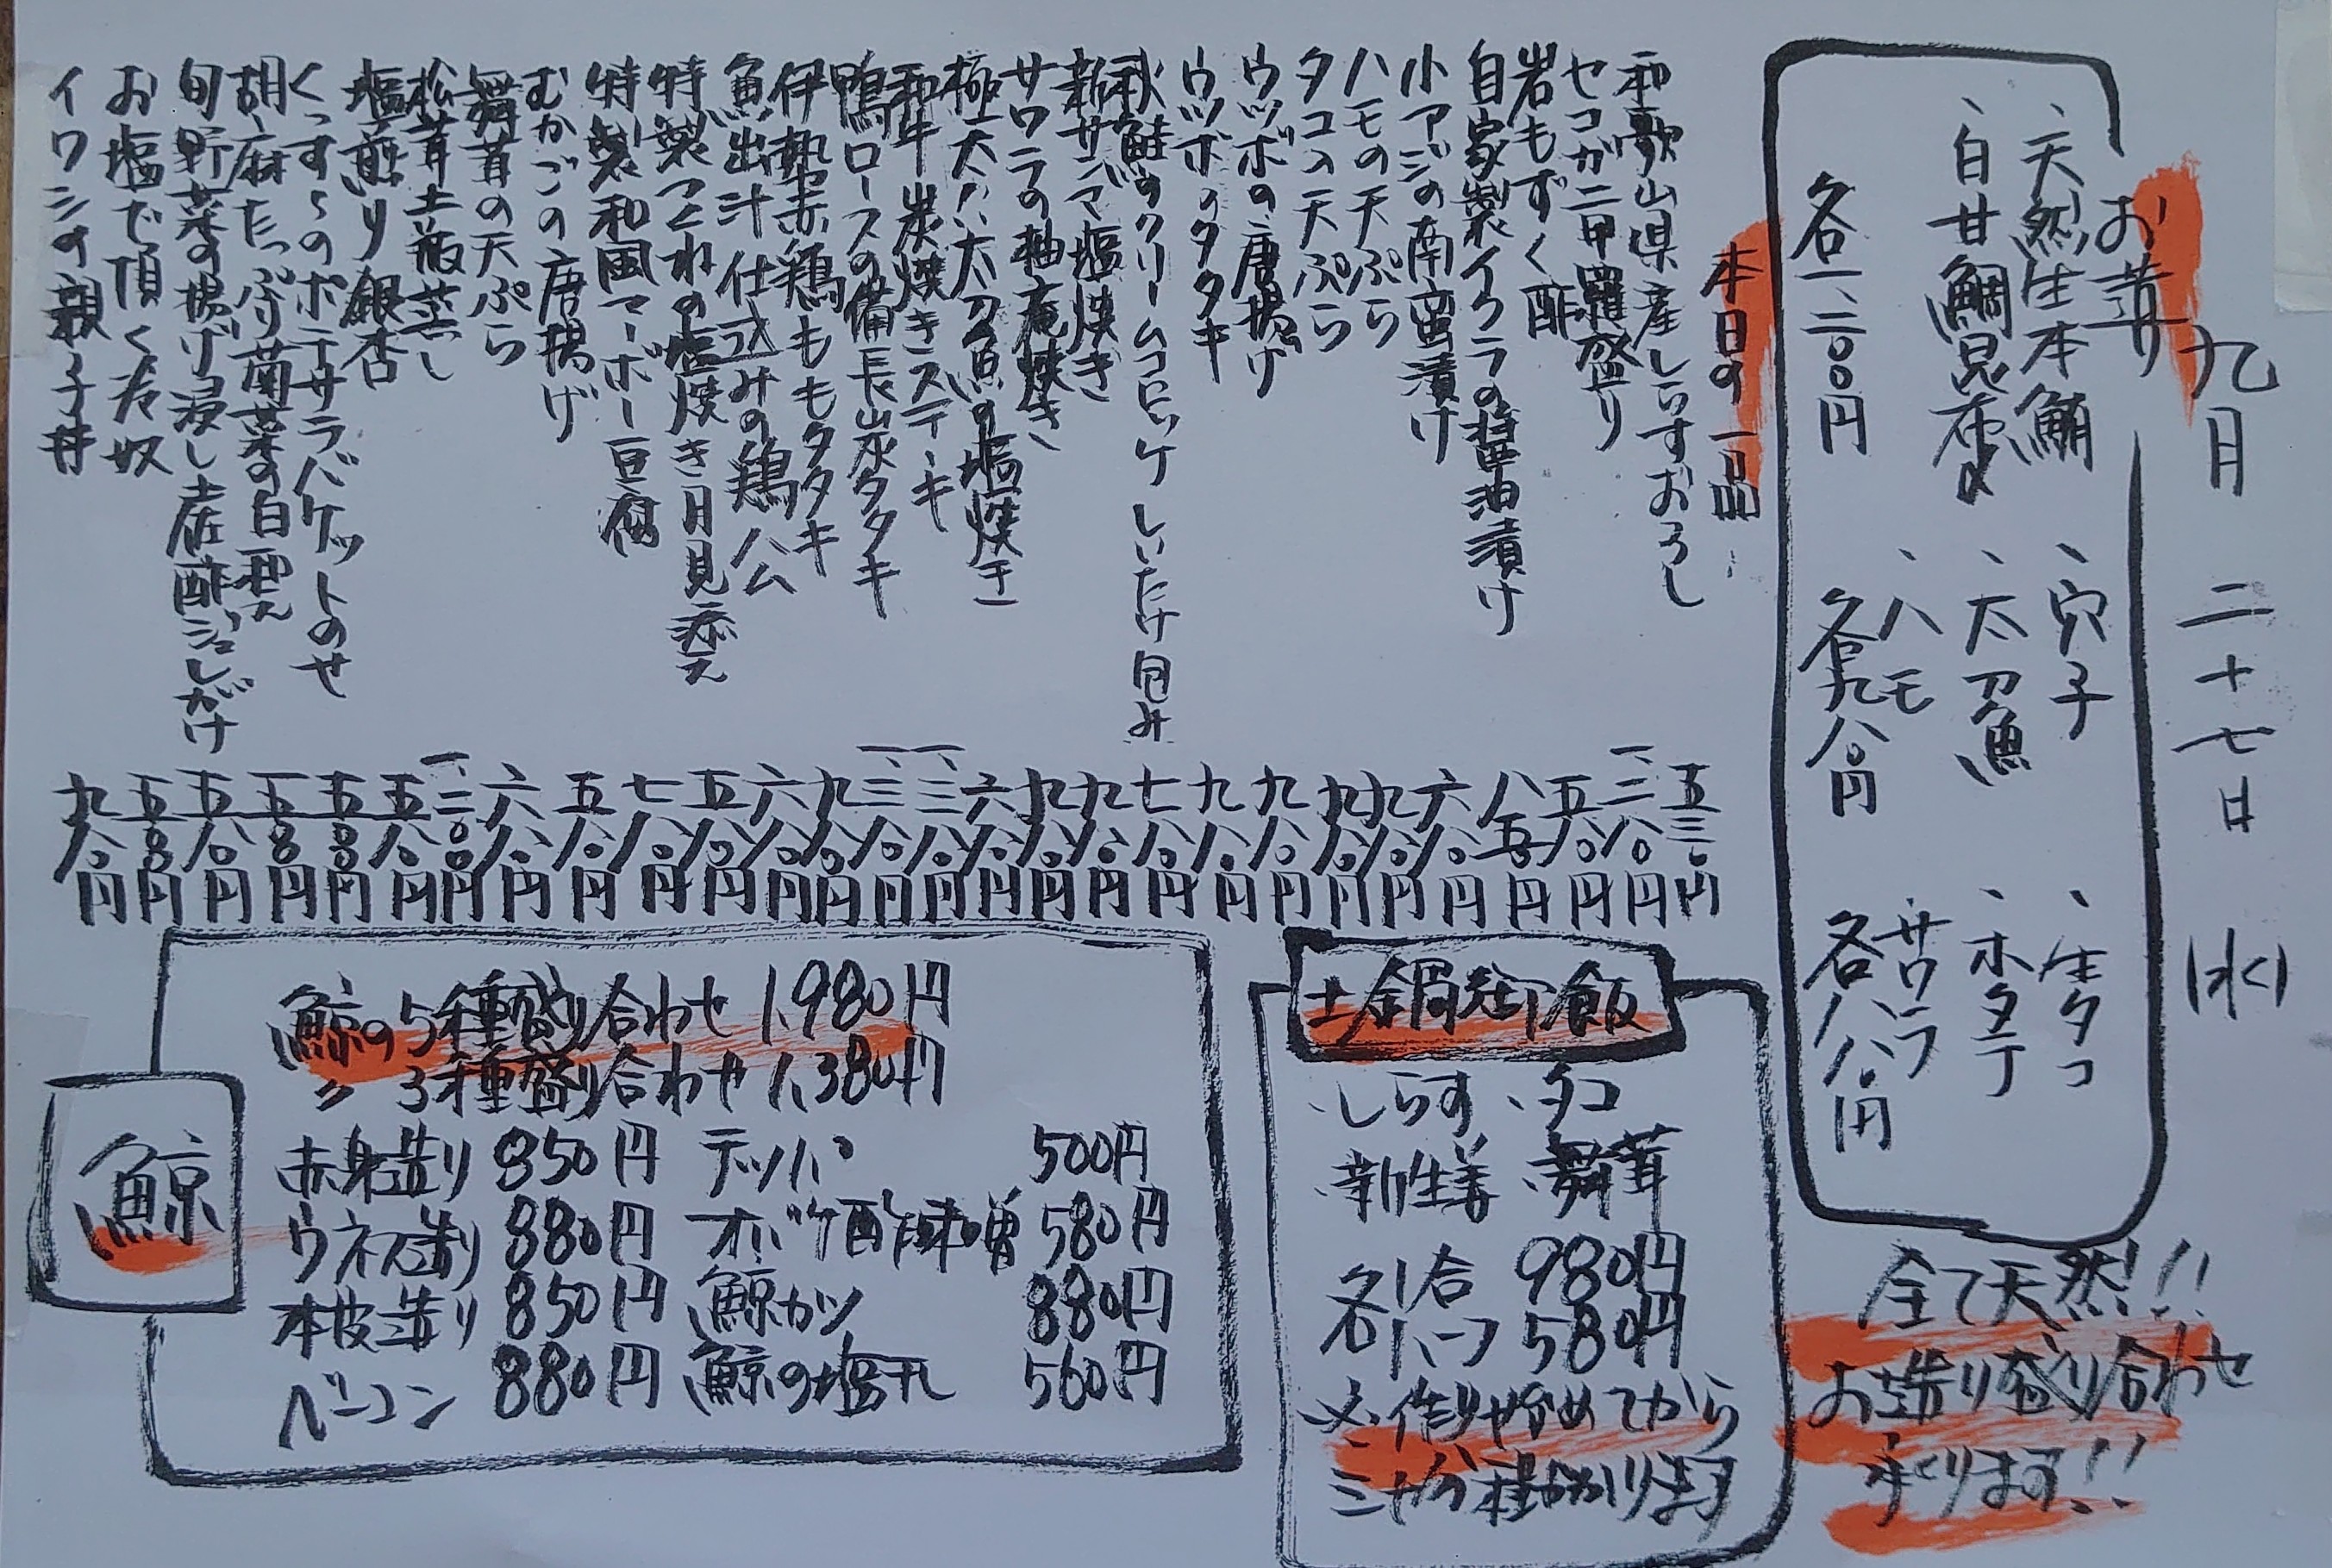 九月 二十七日 (水)
お造り
、天然生本鮪 、穴子 、生タコ
、白甘鯛昆布〆 、太刀魚 、ホタテ
、ハモ 、サワラ
各一、二〇〇円 各九八〇円 各八八〇円
全て天然!!
お造り盛り合わせ
承ります!!
本日の一品
和歌山県産しらすおろし 五三〇円
セコガニ甲羅盛り 一、三八〇円
岩もずく酢 五八〇円
自家製イクラの醤油漬け 八五〇円
小アジの南蛮漬け 六八〇円
ハモの天ぷら 九八〇円
タコの天ぷら 九八〇円
ウツボの唐揚げ 九八〇円
ウツボのタタキ 九八〇円
秋鮭のクリームコロッケ しいたけ包み 七八〇円
新サンマ塩焼き 九八〇円
サワラの柚庵焼き 九八〇円
極太タレ太刀魚の塩焼き 六八〇円
和牛炭焼きステーキ 一、三八〇円
鴨ロースの備長炭タタキ 一、三八〇円
伊勢赤鶏ももタタキ 九八〇円
魚出汁仕込みの鶏ハム 六八〇円
特製つくねの塩焼き月見添え 五八〇円
特製和風マーボー豆腐 七八〇円
むかごの唐揚げ 五八〇円
舞茸の天ぷら 六八〇円
松茸土瓶蒸し 一、二〇〇円
塩煎り銀杏 五八〇円
くっすぅのポテサラバケットのせ 五五〇円
胡麻たっぷり菊菜の白和え 五五〇円
旬野菜の揚げ浸し土佐酢ジュレがけ 五八〇円
お塩で頂く冷奴 五五〇円
イワシの親子丼 九八〇円
土鍋御飯
、しらす 、タコ
、新生姜 、舞茸
各1合 980円
各ハーフ 580円
※作り始めてから
三十分程かかります
鯨
鯨の5種盛り合わせ 1,980円
〃 3種盛り合わせ 1,380円
赤身造り 850円 テッパ 500円
ウネス造り 880円 オバケ酢味噌 580円
本皮造り 850円 鯨カツ 880円
ベーコン 880円 鯨の塩干し 560円